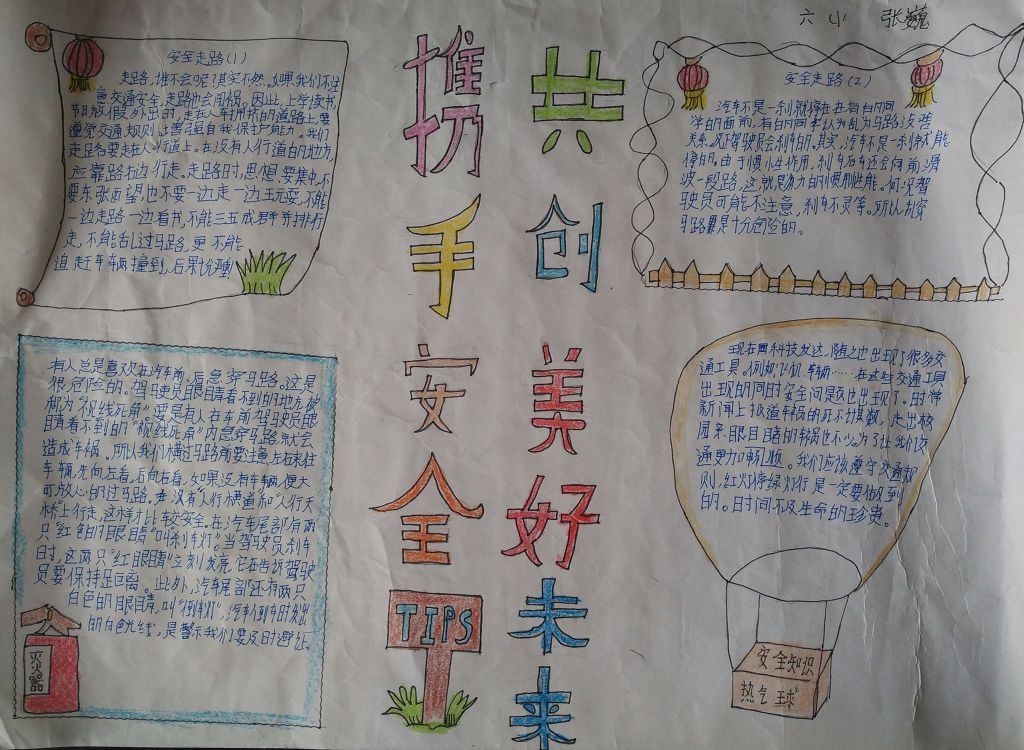 六小 张巍
携手安全
共创美好未来
TIPS
安全走路(1)
走路,谁不会呢?其实不然。如果我们不注
意交通安全,走路也会闯祸。因此,上学读书,
节日放假外出时,走在人车拥挤的道路上,要
遵守交通规则,增强自我保护能力。我们
走路要走在人行道上。在没有人行道的地方,
应靠路右边行走。走路时,思想要集中,不
要东张西望,也不要一边走一边玩耍,不能
一边走路一边看书,不能三五成群并排行
走,不能乱过马路,更不能
追赶车辆
撞到,后果
安全走路(2)
汽车不是一刹就停
的面前,有的同学认为乱过马路没啥
关系,反正驾驶员会刹车的。其实,汽车不是一刹就能
停的,由于惯性作用,刹车后车还会向前滑
一段路,这就
驶员可能不注意,刹车不灵等。所以乱穿
马路是十分危险的。
有人总是喜欢在汽车前、后急穿马路。这是
很危险的。驾驶员眼睛看不到的地方被
称为“视线死角”。要是有人在车前驾驶员眼
睛看不到的“视线死角”内急穿马路,就会
造成车祸。所以我们横过马路需要注意左右来往
车辆,先向左看,后向右看,如果没有车辆便大
可放心的过马路,
没有“人行横道”和“人行天
桥”上行走,这样才比较安全。在汽车尾部有两
只红色的“眼睛”叫“刹车灯”。当驾驶员刹车
时,这两只“红眼睛”立刻发亮,它在告诉驾驶
员要保持距离。此外,汽车尾部还有两只
白色的“眼睛”,叫“倒车灯”,汽车倒车时发出
的白色光线,是警示我们要及时避让。
灭火器
现在两科技发达,随之也出现了很多交
通工具。例如:飞机、车辆……在这些交通工具
出现的同时安全问题也出现了。时常
新闻上报道车祸的死不计其数,走出校
园亲眼目睹的车祸也不少。为了让我们交
通更加畅顺。我们应该遵守交通规
则,红灯停绿灯行是一定要做到
的。时间不及生命的珍贵。
安全知识
热气球